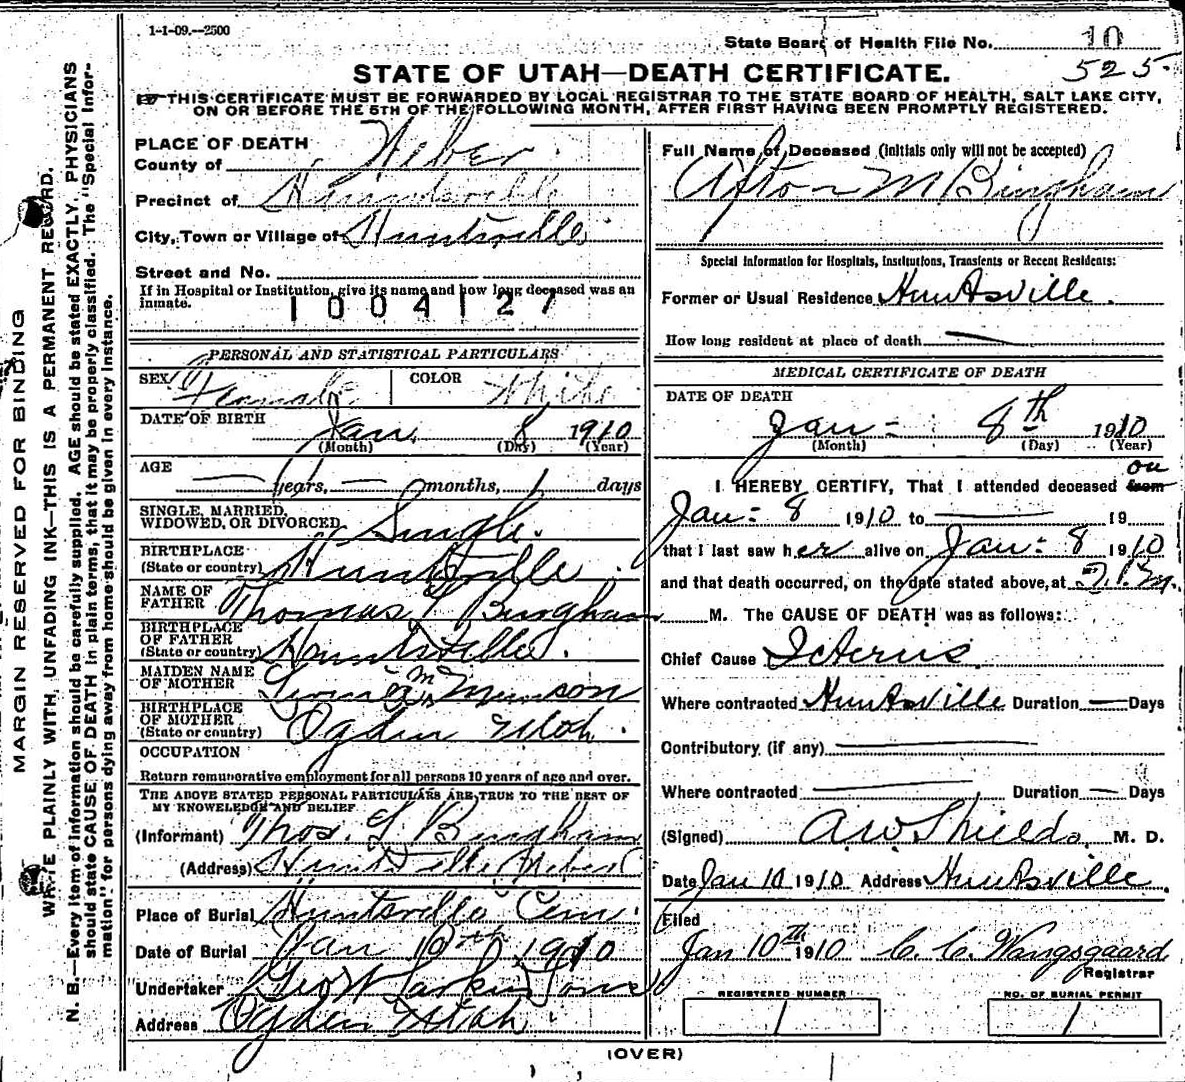 1-1-09.--2500
State Board of Health File No. 10
525
STATE OF UTAH—DEATH CERTIFICATE.
THIS CERTIFICATE MUST BE FORWARDED BY LOCAL REGISTRAR TO THE STATE BOARD OF HEALTH, SALT LAKE CITY,
ON OR BEFORE THE 5TH OF THE FOLLOWING MONTH, AFTER FIRST HAVING BEEN PROMPTLY REGISTERED.
MARGIN RESERVED FOR BINDING
WRITE PLAINLY WITH UNFADING INK—THIS IS A PERMANENT RECORD.
N. B.—Every item of information should be carefully supplied. AGE should be stated EXACTLY. PHYSICIANS
should state CAUSE OF DEATH in plain terms, that it may be properly classified. The "Special Infor-
mation" for persons dying away from home should be given in every instance.
PLACE OF DEATH
County of Weber
Precinct of Huntsville
City, Town or Village of Huntsville
Street and No.
If in Hospital or Institution, give its name and how long deceased was an
inmate.
1004127
PERSONAL AND STATISTICAL PARTICULARS
SEX Female COLOR White
DATE OF BIRTH
Jan. 8 1910
(Month) (Day) (Year)
AGE
— years, — months, 1 days
SINGLE, MARRIED,
WIDOWED, OR DIVORCED Single.
BIRTHPLACE
(State or country) Huntsville
NAME OF
FATHER Thomas G Bingham
BIRTHPLACE
OF FATHER
(State or country) Huntsville.
MAIDEN NAME
OF MOTHER Munson
BIRTHPLACE
OF MOTHER
(State or country) Ogden Utah.
OCCUPATION
Return remunerative employment for all persons 10 years of age and over.
THE ABOVE STATED PERSONAL PARTICULARS ARE TRUE TO THE BEST OF
MY KNOWELEDGE AND BELIEF
(Informant) Thos. G Bingham
(Address) Huntsville Weber C
Place of Burial Huntsville Cem.
Date of Burial Jan 10th 1910
Undertaker Geo W Larkin Sons
Address Ogden Utah.
Full Name of Deceased (Initials only will not be accepted)
Afton M Bingham
Special Information for Hospitals, Institutions, Transients or Recent Residents:
Former or Usual Residence Huntsville.
How long resident at place of death —
MEDICAL CERTIFICATE OF DEATH
DATE OF DEATH
Jan- 8th 1910
(Month) (Day) (Year)
on
I HEREBY CERTIFY, That I attended deceased from
Jan- 8 1910 to — 19
that I last saw her alive on Jan- 8 1910
and that death occurred, on the date stated above, at P.M.
M. The CAUSE OF DEATH was as follows:
Chief Cause Icterus
Where contracted Huntsville Duration — Days
Contributory (if any) —
Where contracted — Duration — Days
(Signed) A.W. Shields, M. D.
Date Jan 10 1910 Address Huntsville.
Filed
Jan 10th 1910 C. C. Wangsgaard
Registrar
REGISTERED NUMBER
1
NO. OF BURIAL PERMIT
1
(OVER)